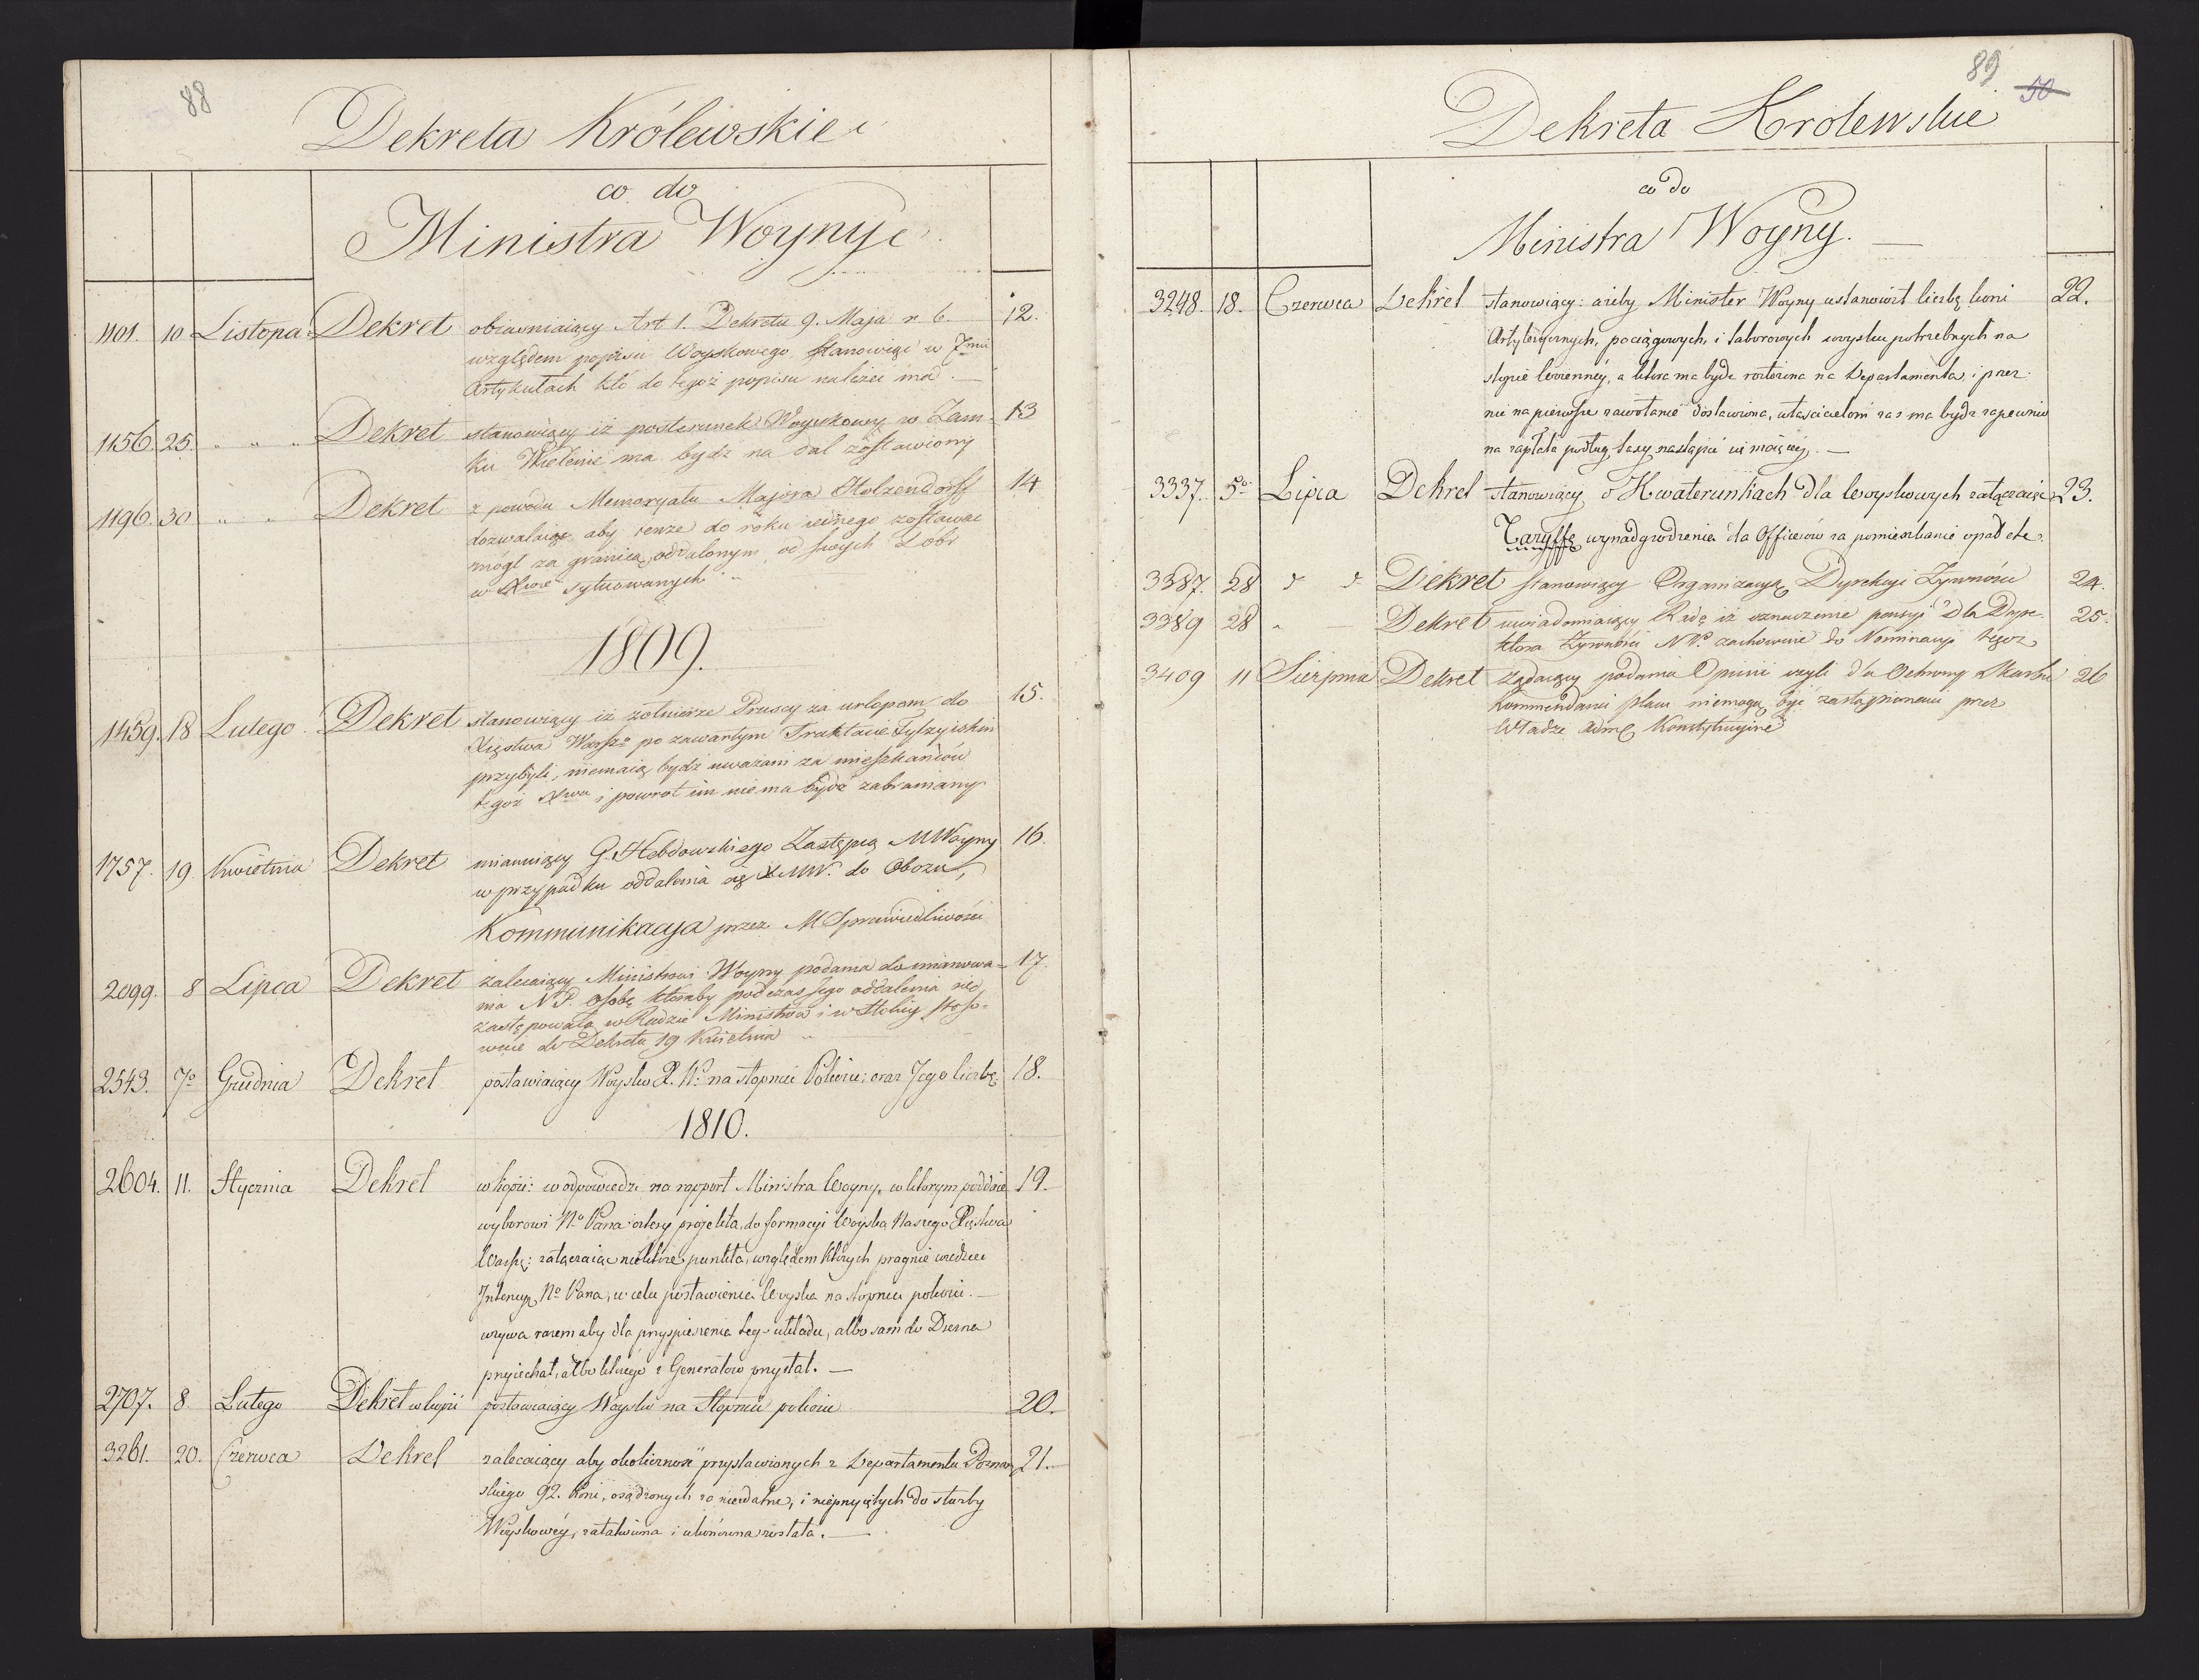 88
Dekreta Królewskie
co do
Ministra Woyny
1101. 10 Listopa: Dekret obiaśniaiący Art 1. Dekretu 9. Maja r. b. 12.
względem popisu Woyskowego stanowiąc w 7miu
Artykułach kto do tegoż popisu należeć ma. —
1156. 25. " " " Dekret stanowiący iż posterunek Woyskowy w Zam- 13
ku Wielenie ma bydz na dal zostawiony
1196. 30 " " Dekret z powodu Memoryału Majora Holzendorff 14
dozwalaiąc aby tenże do roku iednego zostawać
mógł za granicą oddalonym od swych Dóbr
w Xwie sytuowanych "
1809.
1459. 18 Lutego Dekret stanowiący iż żołnierze Pruscy za urlopem do 15.
Xięstwa Warszo po zawartym Traktacie Tylżyiskim
przybyli, niemaią bydz uważani za mieszkańców
tegoż Xwa i powrot im nie ma bydz zabraniany
1757. 19. Kwietnia Dekret mianuiący G. Hebdowskiego Zastępcą MWoyny 16.
w przypadku oddalenia się XMW. do Obozu,
Kommunikacya przez M Sprawiedliwości
2099. 8 Lipca Dekret zalecaiący Ministrowi Woyny podania do mianowa- 17.
nia N P. osobę któraby podczas jego oddalenia się
zastępowała w Radzie Ministrów i w Stolicy stoso-
wnie do Dekretu 19 Kwietnia "
2543. 7o Grudnia Dekret postawiaiący Woysko X. W: na stopniu Pokoiu: oraz Jego liczbę 18.
1810.
2604. 11. Stycznia Dekret w kopii: w odpowiedzi na rapport Ministra Woyny, w którym poddaie 19.
wyborowi No Pana cztery projekta, do formacyi Woyska Naszego Xięstwa
Warsz: załączaiąc niektóre punkta, względem których pragnie wiedzieć
Intencyę No Pana, w celu postawienia Woyska na stopniu pokoiu. —
wzywa razem aby dla przyspieszenia tego układu, albo sam do Drezna
przyiechał, albo którego z Generałów przysłał. —
2707. 8. Lutego Dekret w kopii postawiaiący Woysko na Stopniu pokoiu 20.
3261. 20. Czerwca Dekret zalecaiący aby okoliczność przystawionych z Departamentu Poznań 21.
skiego 92. koni, osądzonych za niezdatne, i nieprzyiętych do służby
Woyskowéy, załatwiona i ukończona została. —
89 50
Dekreta Krolewskie
co do
Ministra Woyny. —
3248. 18. Czerwca Dekret stanowiący: ażeby Minister Woyny ustanowił liczbę koni 22.
Artyleryinych, pociągowych, i taborowych woysku potrzebnych na
stopie woienney, a która ma bydz rozłożona na Departamenta, i przez
nie na pierwsze zawołanie dostawiona, właścicielom zaś ma bydz zapewnio
na zapłata podług taxy nastąpić się maiącéy. —
3337. 5o Lipca Dekret stanowiący o Kwaterunkach dla woyskowych załączaiąc 23.
Taryffę wynadgrodzenia dla Officerów za pomieszkanie opał etc.
3387. 28 " " Dekret stanowiący Organizacyą Dyrekcyi Żywności 24.
3389 28 " — Dekret uwiadomiaiący Radę iż oznaczenie pensyi dla Dyre- 25.
ktora Żywności NP. zachowuie do Nominacyi tegoż
3409 11 Sierpnia Dekret żądaiący podania Opinii czyli dla Ochrony Skarbu 26
Kommendanci placu niemogą być zastąpionemi przez
Władze Admę Konstytucyine